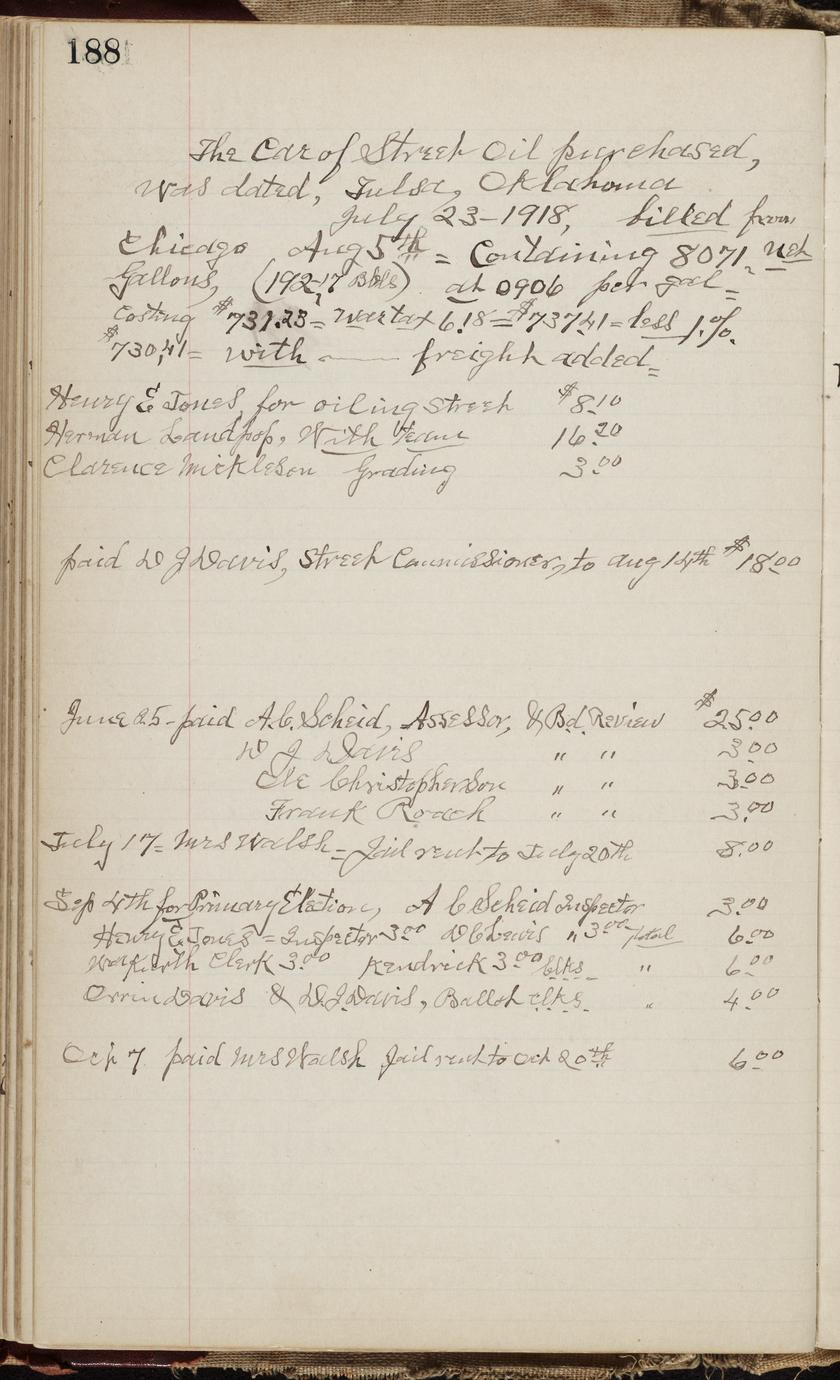 188
The Car of Street Oil purchased,
was dated, Tulsa, Oklahoma
July 23-1918, billed from
Chicago Aug 5th = Containing 8071 net
Gallons, (192-17 Bbls) at 0906 per gal =
Costing $731.23 = war tax 6.18 = $737.41 = less 1%.
$730.41 = with —— freight added =
Henry E Jones, for oiling street $8.10
Herman Landpop, With Team 16.20
Clarence Mickleson Grading 3.00
paid D J Davis, Street Commissioner, to aug 14th $18.00
June 25- paid A.C. Scheid, Assessor, & Bd. Review $25.00
D J Davis " " 3.00
Ole Christopherson " " 3.00
Frank Roach " " 3.00
July 17 = Mrs Walsh = Jail rent to July 20th 8.00
Sep 4th for Primary Election, A C Scheid Inspector 3.00
Henry E. Jones = Inspector 3.00 D C Lewis " 3.00 total 6.00
Clerk 3.00 Kendrick 3.00 Clks " 6.00
Orrin Davis & D.J. Davis, Ballot clks. " 4.00
Oct 7 paid Mrs Walsh Jail rent to Oct 20th 6.00